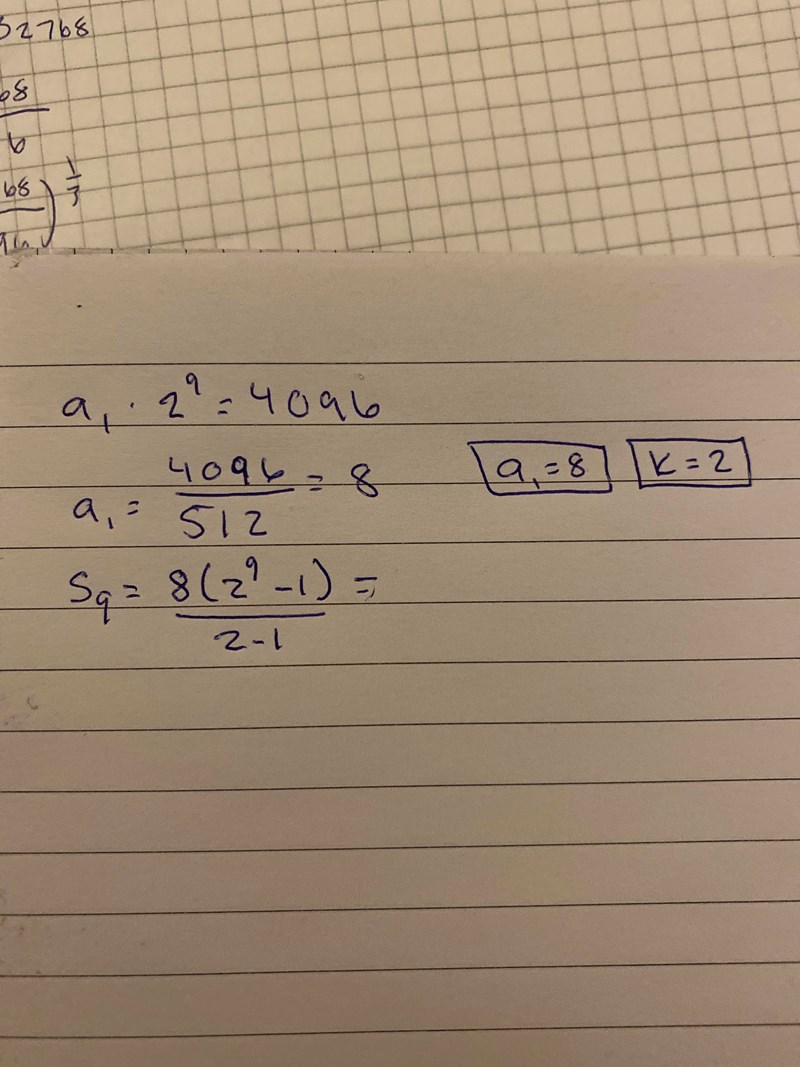 32768
68
6
68)^(1/3)
a₁ · 2⁹ = 4096
a₁ = 4096/512 = 8
a₁ = 8 K = 2
S₉ = 8(2⁹ - 1)/(2 - 1) =